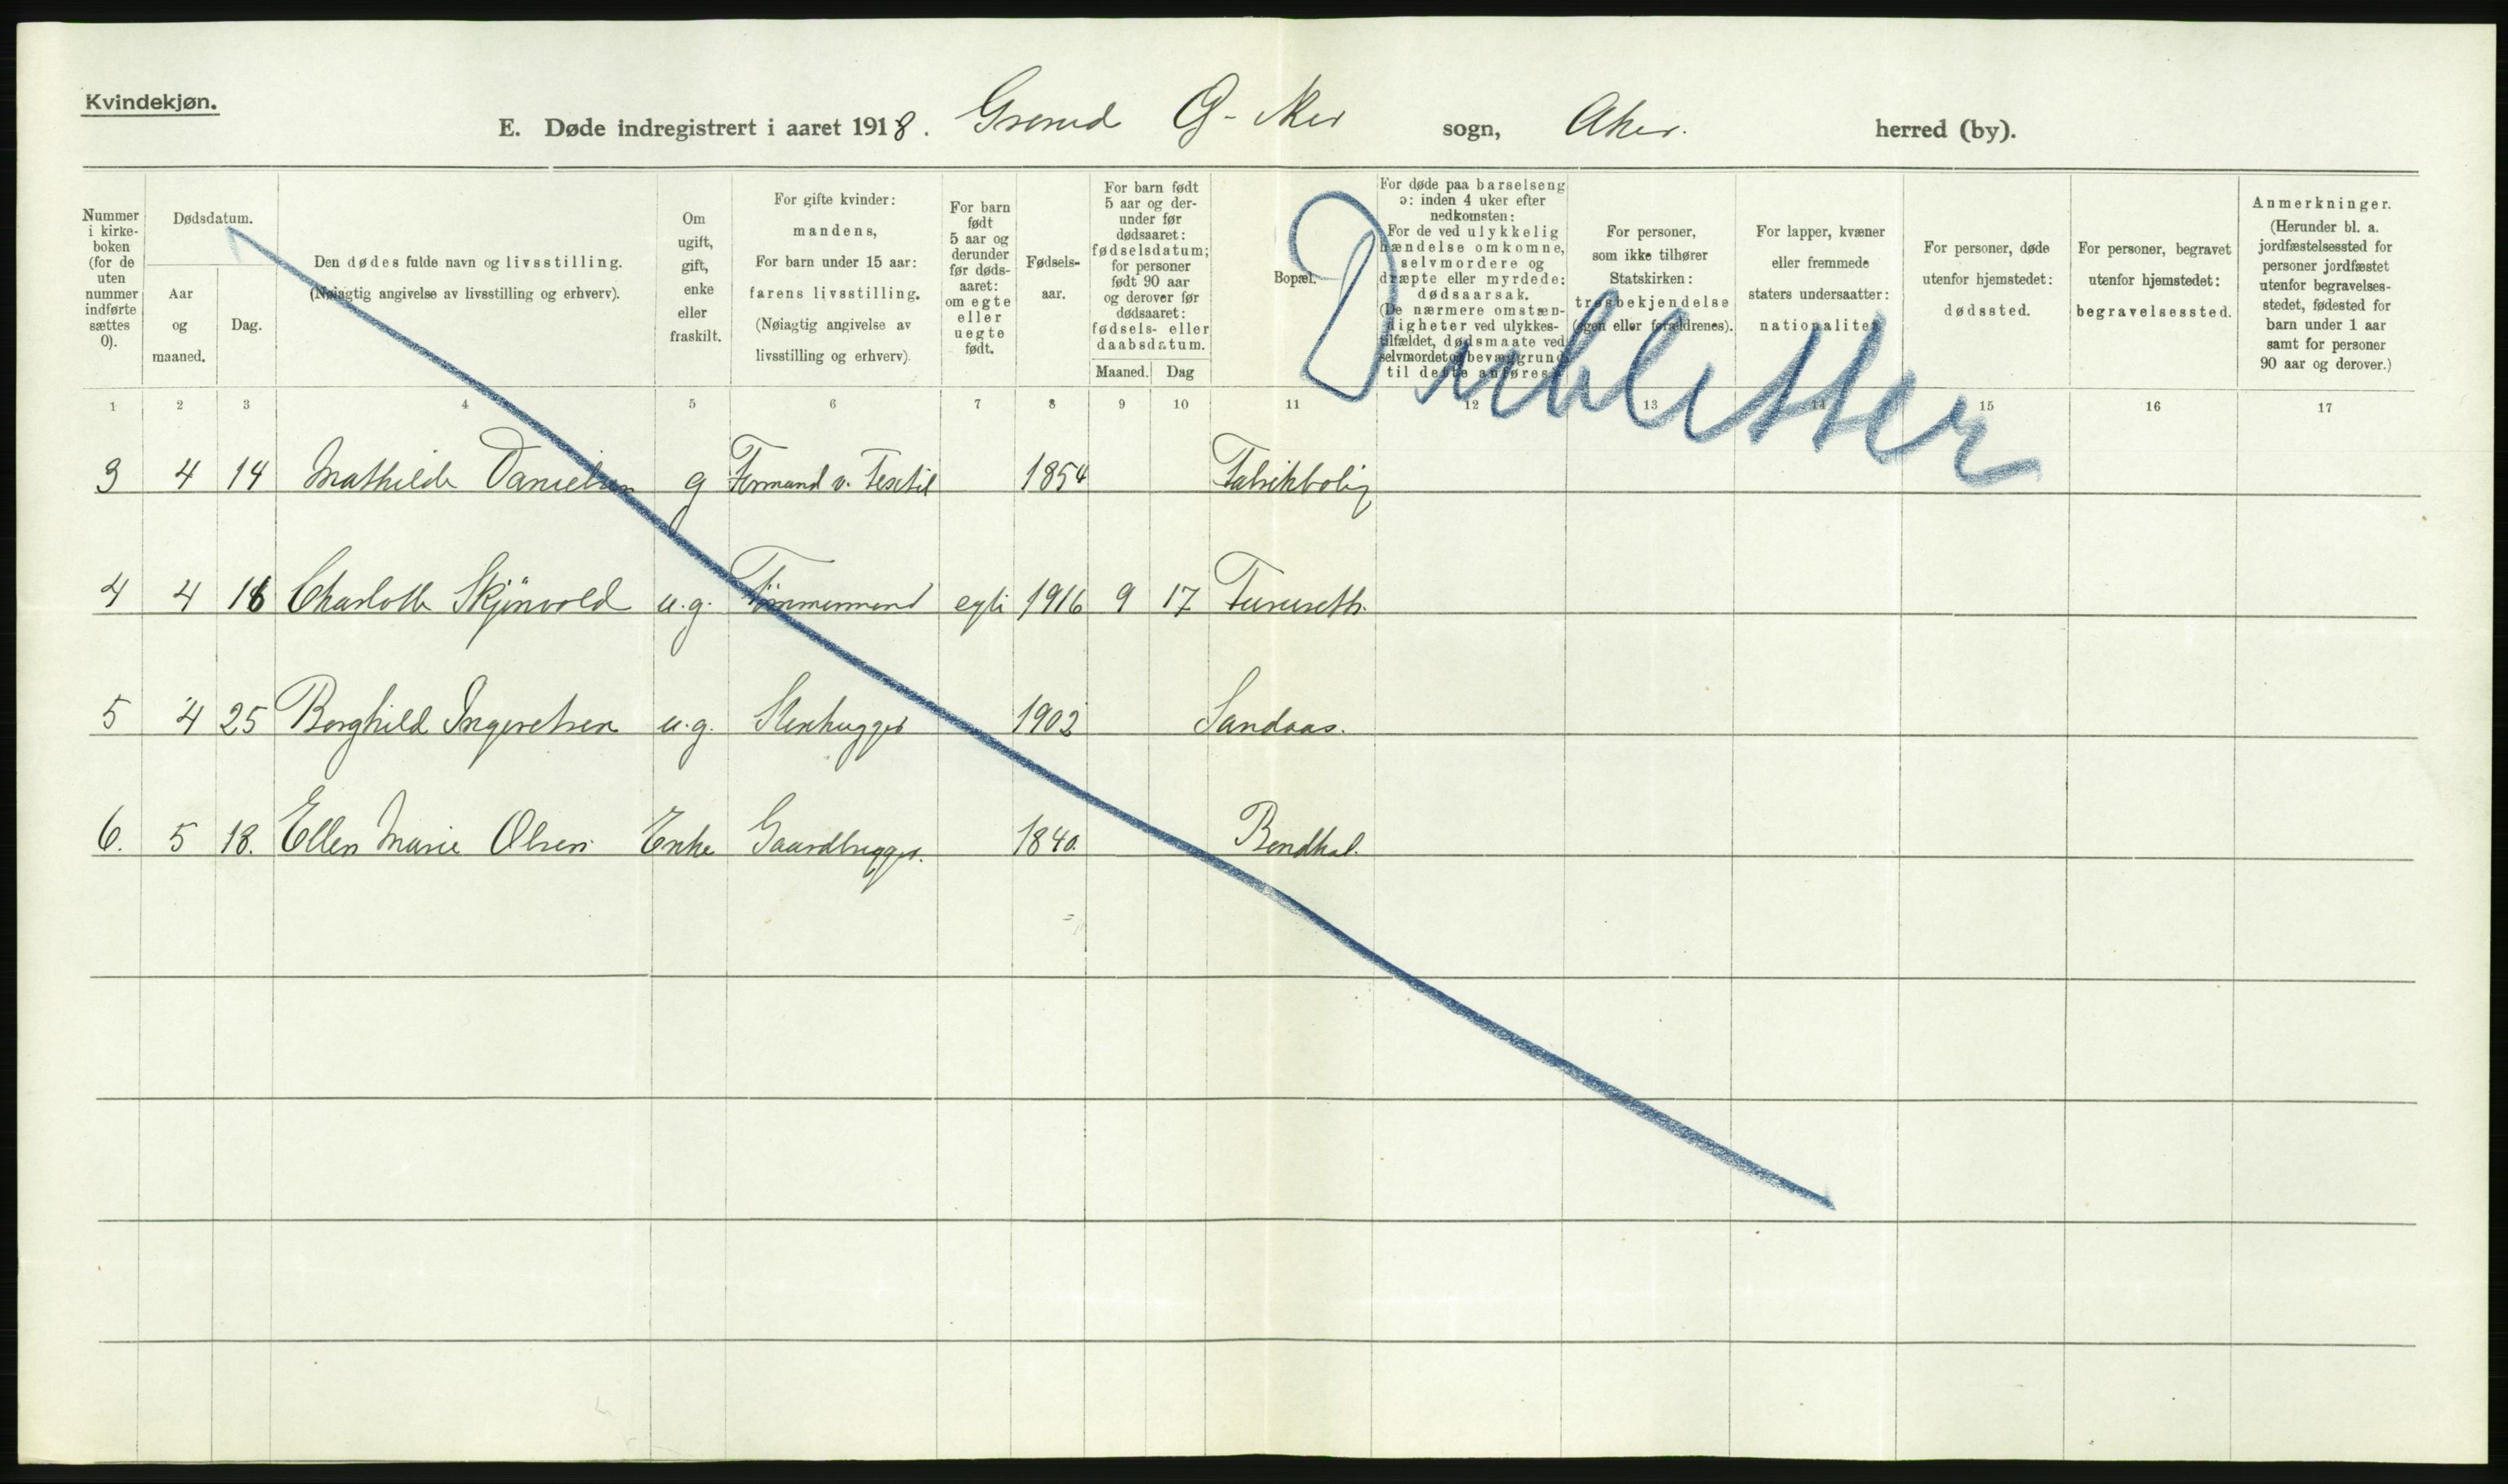 Kvindekjøn.
E. Døde indregistrert i aaret 1918. Grorud Ø. Aker sogn, Aker. herred (by).
Nummer i kirke-boken (for de uten nummer indførte sættes 0).
Dødsdatum.
Aar og maaned.
Dag.
Den dødes fulde navn og livsstilling.
(Nøiagtig angivelse av livsstilling og erhverv).
Om ugift, gift, enke eller fraskilt.
For gifte kvinder: mandens,
For barn under 15 aar: farens livsstilling.
(Nøiagtig angivelse av livsstilling og erhverv).
For barn født 5 aar og derunder før døds-aaret: om egte eller uegte født.
Fødsels-aar.
For barn født 5 aar og der-under før dødsaaret: fødselsdatum; for personer født 90 aar og derover før dødsaaret: fødsels- eller daabsdatum.
Maaned. Dag
Bopæl.
For døde paa barselseng ɔ: inden 4 uker efter nedkomsten:
For de ved ulykkelig hændelse omkomne, selvmordere og dræpte eller myrdede: dødsaarsak.
(De nærmere omstæn-digheter ved ulykkes-tilfældet, dødsmaate ved selvmordet og bevæggrund til dette anføres).
For personer, som ikke tilhører Statskirken: trosbekjendelse (egen eller forældrenes).
For lapper, kvæner eller fremmede staters undersaatter: nationalitet
For personer, døde utenfor hjemstedet: dødssted.
For personer, begravet utenfor hjemstedet: begravelsessted.
Anmerkninger.
(Herunder bl. a. jordfæstelsessted for personer jordfæstet utenfor begravelses-stedet, fødested for barn under 1 aar samt for personer 90 aar og derover.)
Dubletter
1 2 3 4 5 6 7 8 9 10 11 12 13 14 15 16 17
3 4 14 Mathilde Danielsen g Formand v. Textil 1854 Fabrikbolig
4 4 18 Charlotte Skjönvold u.g. Tömmermand egte 1916 9 17 Furuseth.
5 4 25 Borghild Ingvretsen u.g. Stenhugger 1902 Sandaas.
6. 5 18. Ellen Marie Olsen Enke Gaardbrugger. 1840.